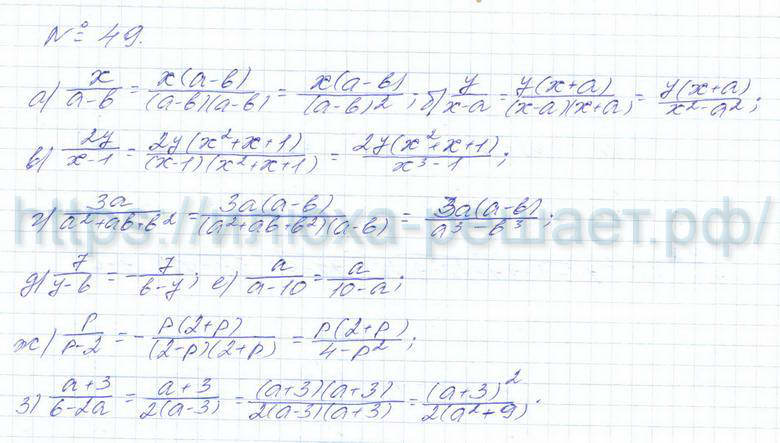 № 49.
а) x/(a-b) = x(a-b)/((a-b)(a-b)) = x(a-b)/(a-b)²; б) y/(x-a) = y(x+a)/((x-a)(x+a)) = y(x+a)/(x²-a²);
в) 2y/(x-1) = 2y(x²+x+1)/((x-1)(x²+x+1)) = 2y(x²+x+1)/(x³-1);
г) 3a/(a²+ab+b²) = 3a(a-b)/((a²+ab+b²)(a-b)) = 3a(a-b)/(a³-b³);
https://timoxa-решает.рф/
д) 7/(y-b) = -7/(b-y); е) a/(a-10) = a/(10-a);
ж) p/(p-2) = -p(2+p)/((2-p)(2+p)) = p(2+p)/(4-p²);
з) (a+3)/(6-2a) = (a+3)/(2(a-3)) = (a+3)(a+3)/(2(a-3)(a+3)) = (a+3)²/(2(a²+9)).